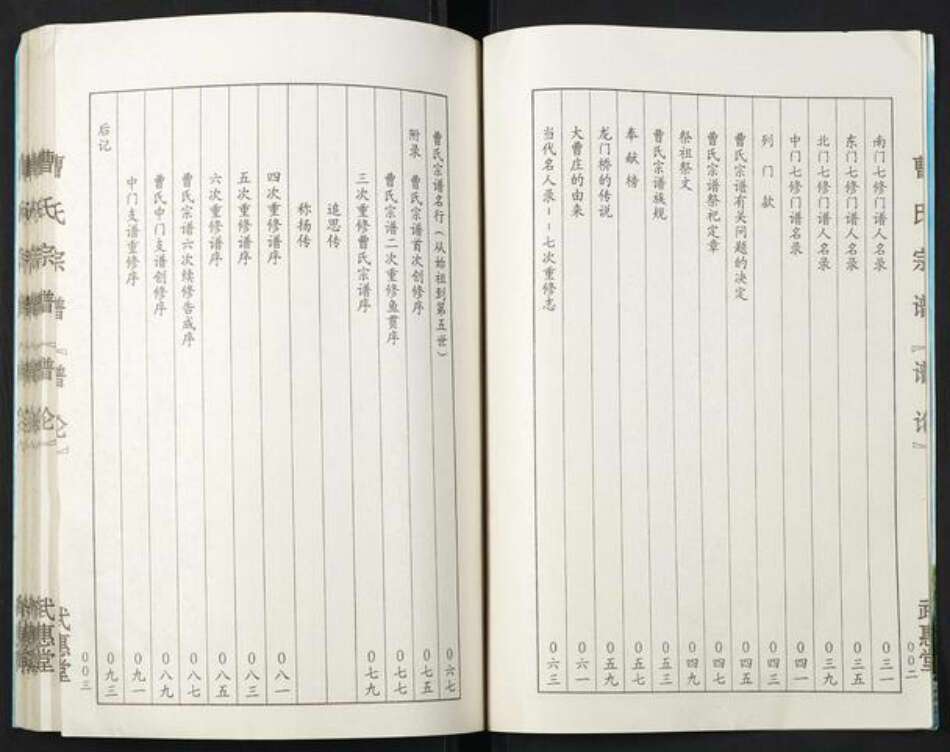 曹氏宗谱『谱论』 武惠堂
００二
南门七修门谱人名录 ０三一
东门七修门谱人名录 ０三五
北门七修门谱人名录 ０三九
中门七修门谱名录 ０四一
列门款 ０四三
曹氏宗谱有关问题的决定 ０四五
曹氏宗谱祭祀定章 ０四七
祭祖祭文 ０四九
曹氏宗谱族规 ０五三
奉献榜 ０五七
龙门桥的传说 ０五九
大曹庄的由来 ０六一
当代名人录--七次重修志 ０六三
曹氏宗谱名行（从始祖到第五世） ０六七
附录 曹氏宗谱首次创修序 ０七五
曹氏宗谱二次重修鱼贯序 ０七七
三次重修曹氏宗谱序 ０七九
追思传
称扬传
四次重修谱序 ０八一
五次重修谱序 ０八三
六次重修谱序 ０八五
曹氏宗谱六次续修告成序 ０八七
曹氏中门支谱创修序 ０八九
中门支谱重修序 ０九一
后记 ０九三
００三
曹氏宗谱『谱论』 武惠堂